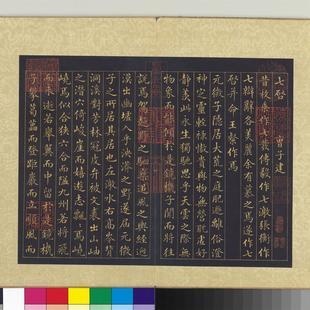 七啓　曹子建
昔枚乘作七發傅毅作七激張衡作
七辯辭各美麗余有慕之焉遂作七
啓并命王粲作焉
元微子隱居大荒之庭飛遯離俗澄
神定靈輕祿傲貴與物無營耽虛好
靜羨此永生獨馳思乎天雲之際無
物象而能傾於是鏡機子聞而將往
說焉駕超野之駟乘追風之輿經迥
漠出幽墟入乎泱漭之野遂屆元微
子之所居其居也左激水右高岑背
洞溪對芳林冠皮弁被文裘出山岫
之潛穴倚峻崖而嬉遊志飄焉嶢
嶢焉似狹六合而隘九州若將飛
而未逝若舉翼而中留於是鏡機
子攀葛藟而登距巖而立順風而